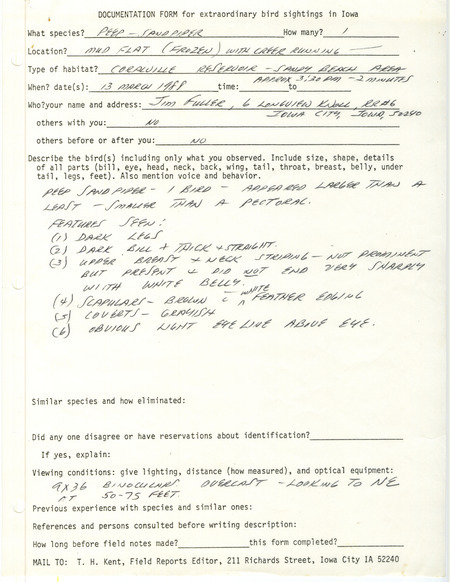 DOCUMENTATION FORM for extraordinary bird sightings in Iowa
What species? PEEP - SANDPIPER How many? 1
Location? MUD FLAT (FROZEN) WITH CREEK RUNNING
Type of habitat? CORALVILLE RESERVOIR - SANDY BEACH AREA
When? date(s): 13 MARCH 1988 time: APPROX 3:30 PM - 2 MINUTES to
Who?your name and address: JIM FULLER, 6 LONGVIEW KNOLL, RR#6
IOWA CITY, IOWA, 52240
others with you: NO
others before or after you: NO
Describe the bird(s) including only what you observed. Include size, shape, details
of all parts (bill, eye, head, neck, back, wing, tail, throat, breast, belly, under
tail, legs, feet). Also mention voice and behavior.
PEEP SANDPIPER - 1 BIRD - APPEARED LARGER THAN A
LEAST - SMALLER THAN A PECTORAL.
FEATURES SEEN:
(1) DARK LEGS
(2) DARK BILL + THICK + STRAIGHT.
(3) UPPER BREAST + NECK STRIPING - NOT PROMINENT
BUT PRESENT & DID NOT END VERY SHARPLY
WITH WHITE BELLY.
(4) SCAPULARS - BROWN c̄ WHITE FEATHER EDGING
(5) COVERTS - GRAYISH
(6) OBVIOUS LIGHT EYE LINE ABOVE EYE.
Similar species and how eliminated:
Did any one disagree or have reservations about identification?
If yes, explain:
Viewing conditions: give lighting, distance (how measured), and optical equipment:
9X36 BINOCULARS OVERCAST - LOOKING TO NE
AT 50-75 FEET
Previous experience with species and similar ones:
References and persons consulted before writing description:
How long before field notes made? this form completed?
MAIL TO: T. H. Kent, Field Reports Editor, 211 Richards Street, Iowa City IA 52240